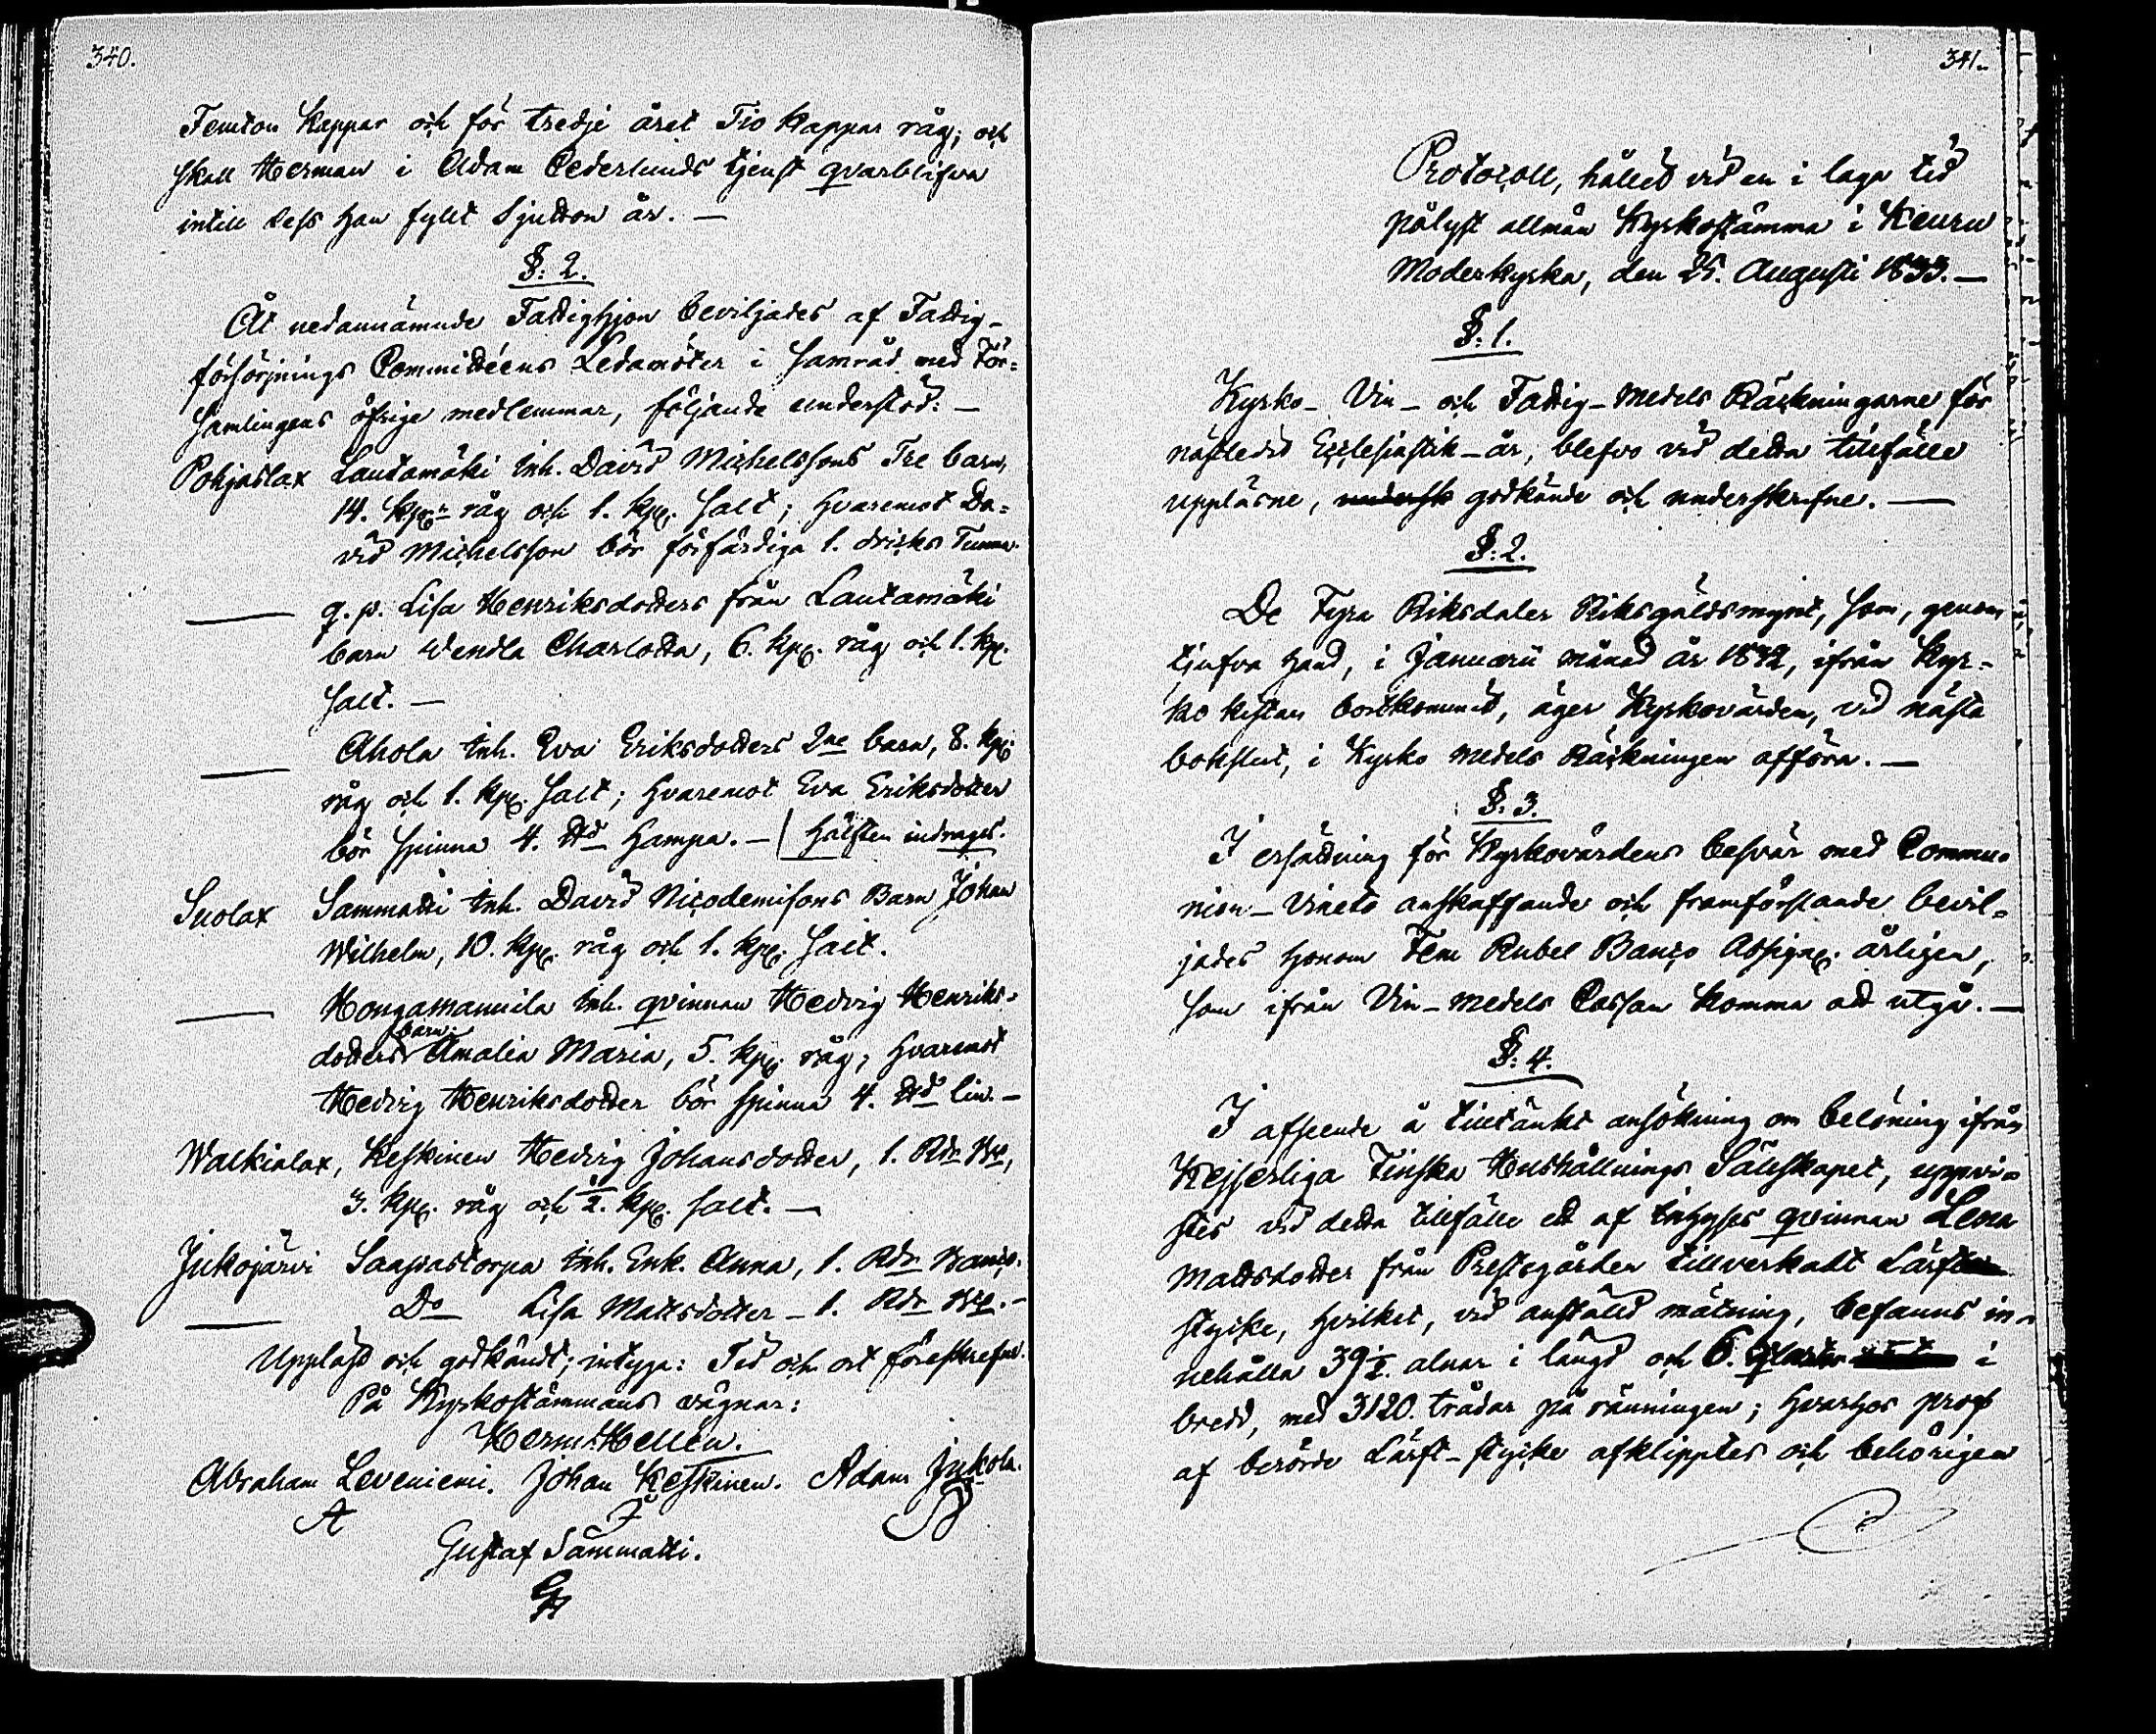 340.
Femton Kappar och för tredje året Tio Kappar råg; och
skall Herman i Adam Cederlunds tjenst qvarblifva
intill dess han fyllt Sjutton år. —
§: 2.
Åt nedannämnde Fattighjon beviljades af Fattig-
försörjnings Committéens Ledamöter i samråd med För=
samlingens öfrige medlemmar, följande understöd: —
Pohjaslax Lautamäki Inh. David Michelssons Tre barn,
14. kpr råg och 1. kpe. salt; hvaremot Da=
vid Michelsson bör förfärdiga 1. dricks Tunna.
— q. p. Lisa Henriksdotters från Lautamäki
barn Wendla Charlotta, 6. kpr. råg och 1. kpe.
salt. —
— Ahola Inh. Eva Eriksdotters 2ne barn, 8. kpr
råg och 1. kpe. salt; hvaremot Eva Eriksdotter
bör spinna 4. ℔d Hampa. — / hälften indrages.
Suolax Sammatti Inh. David Nicodemisons Barn Johan
Wilhelm, 10. kpr. råg och 1. kpe. salt.
— Hongamannila Inh. qvinnan Hedvig Henriks=
dotters barn Amalia Maria, 5. kpr. råg; hvaremot
Hedvig Henriksdotter bör spinna 4. ℔d lin. —
Walkialax, Keskinen Hedvig Johansdotter, 1. Rdr Bco,
3. kpr. råg och ½. kpe. salt. —
Jukojärvi Saapastorpa Inh. Enk. Anna, 1. Rdr Banco.
— Do Lisa Mattsdotter — 1. Rdr Bco. —
Uppläst och godkändt; intyga: Tid och ort föreskrefne.
På Kyrkostämmans vägnar:
Herm: Hellén.
Abraham Leveniemi. Johan Keskinen. Adam Jukola.
Gustaf Sammatti.
341.
Protocoll, hållet vid en i laga tid
pålyst allmän Kyrkostämma i Keuru
Moderkyrka, den 25. Augusti 1833. —
§: 1.
Kyrko- Vin- och Fattig-Medels Räkningarne för
nästledit Ecclesiastik-år, blefvo vid detta tillfälle
uppläsne, undersk godkände och underskrifne. —
§: 2.
De Fyra Riksdaler Riksgäldsmynt, som, genom
tjufva hand, i Januarii månad år 1832, ifrån Kyr-
ko kistan bortkommit, äger Kyrkovärden, vid nästa
bokslut, i Kyrko Medels Räkningen afföra. —
§: 3.
I ersättning för Kyrkovärdens besvär med Commu=
nion-Vinets anskaffande och framförslande bevil=
jades honom Fem Rubel Banco Assigne. årligen,
som ifrån Vin-Medels Cassan komma att utgå. —
§: 4.
I afseende å tilltänkt ansökning om belöning ifrån
Kejserliga Finska Hushållnings Sällskapet, uppvi=
stes vid detta tillfälle ett af Inhyses qvinnan Lena
Mattsdotter från Prestegården tillverkadt Lärft
stycke, hvilket, vid anstäld mätning, befanns in-
nehålla 39½. alnar i längd och 6. qvarter i
bredd, med 3120. trådar på ränningen; hvarhos prof
af berörde Lärft-stycke afklipptes och behörigen